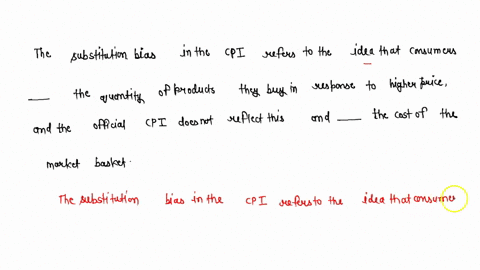 The substitution bias in the CPI refers to the idea that consumers
___ the quantity of products they buy in response to higher price,
and the official CPI does not reflect this and ___ the cost of the
market basket.
The substitution bias in the CPI refers to the idea that consumer